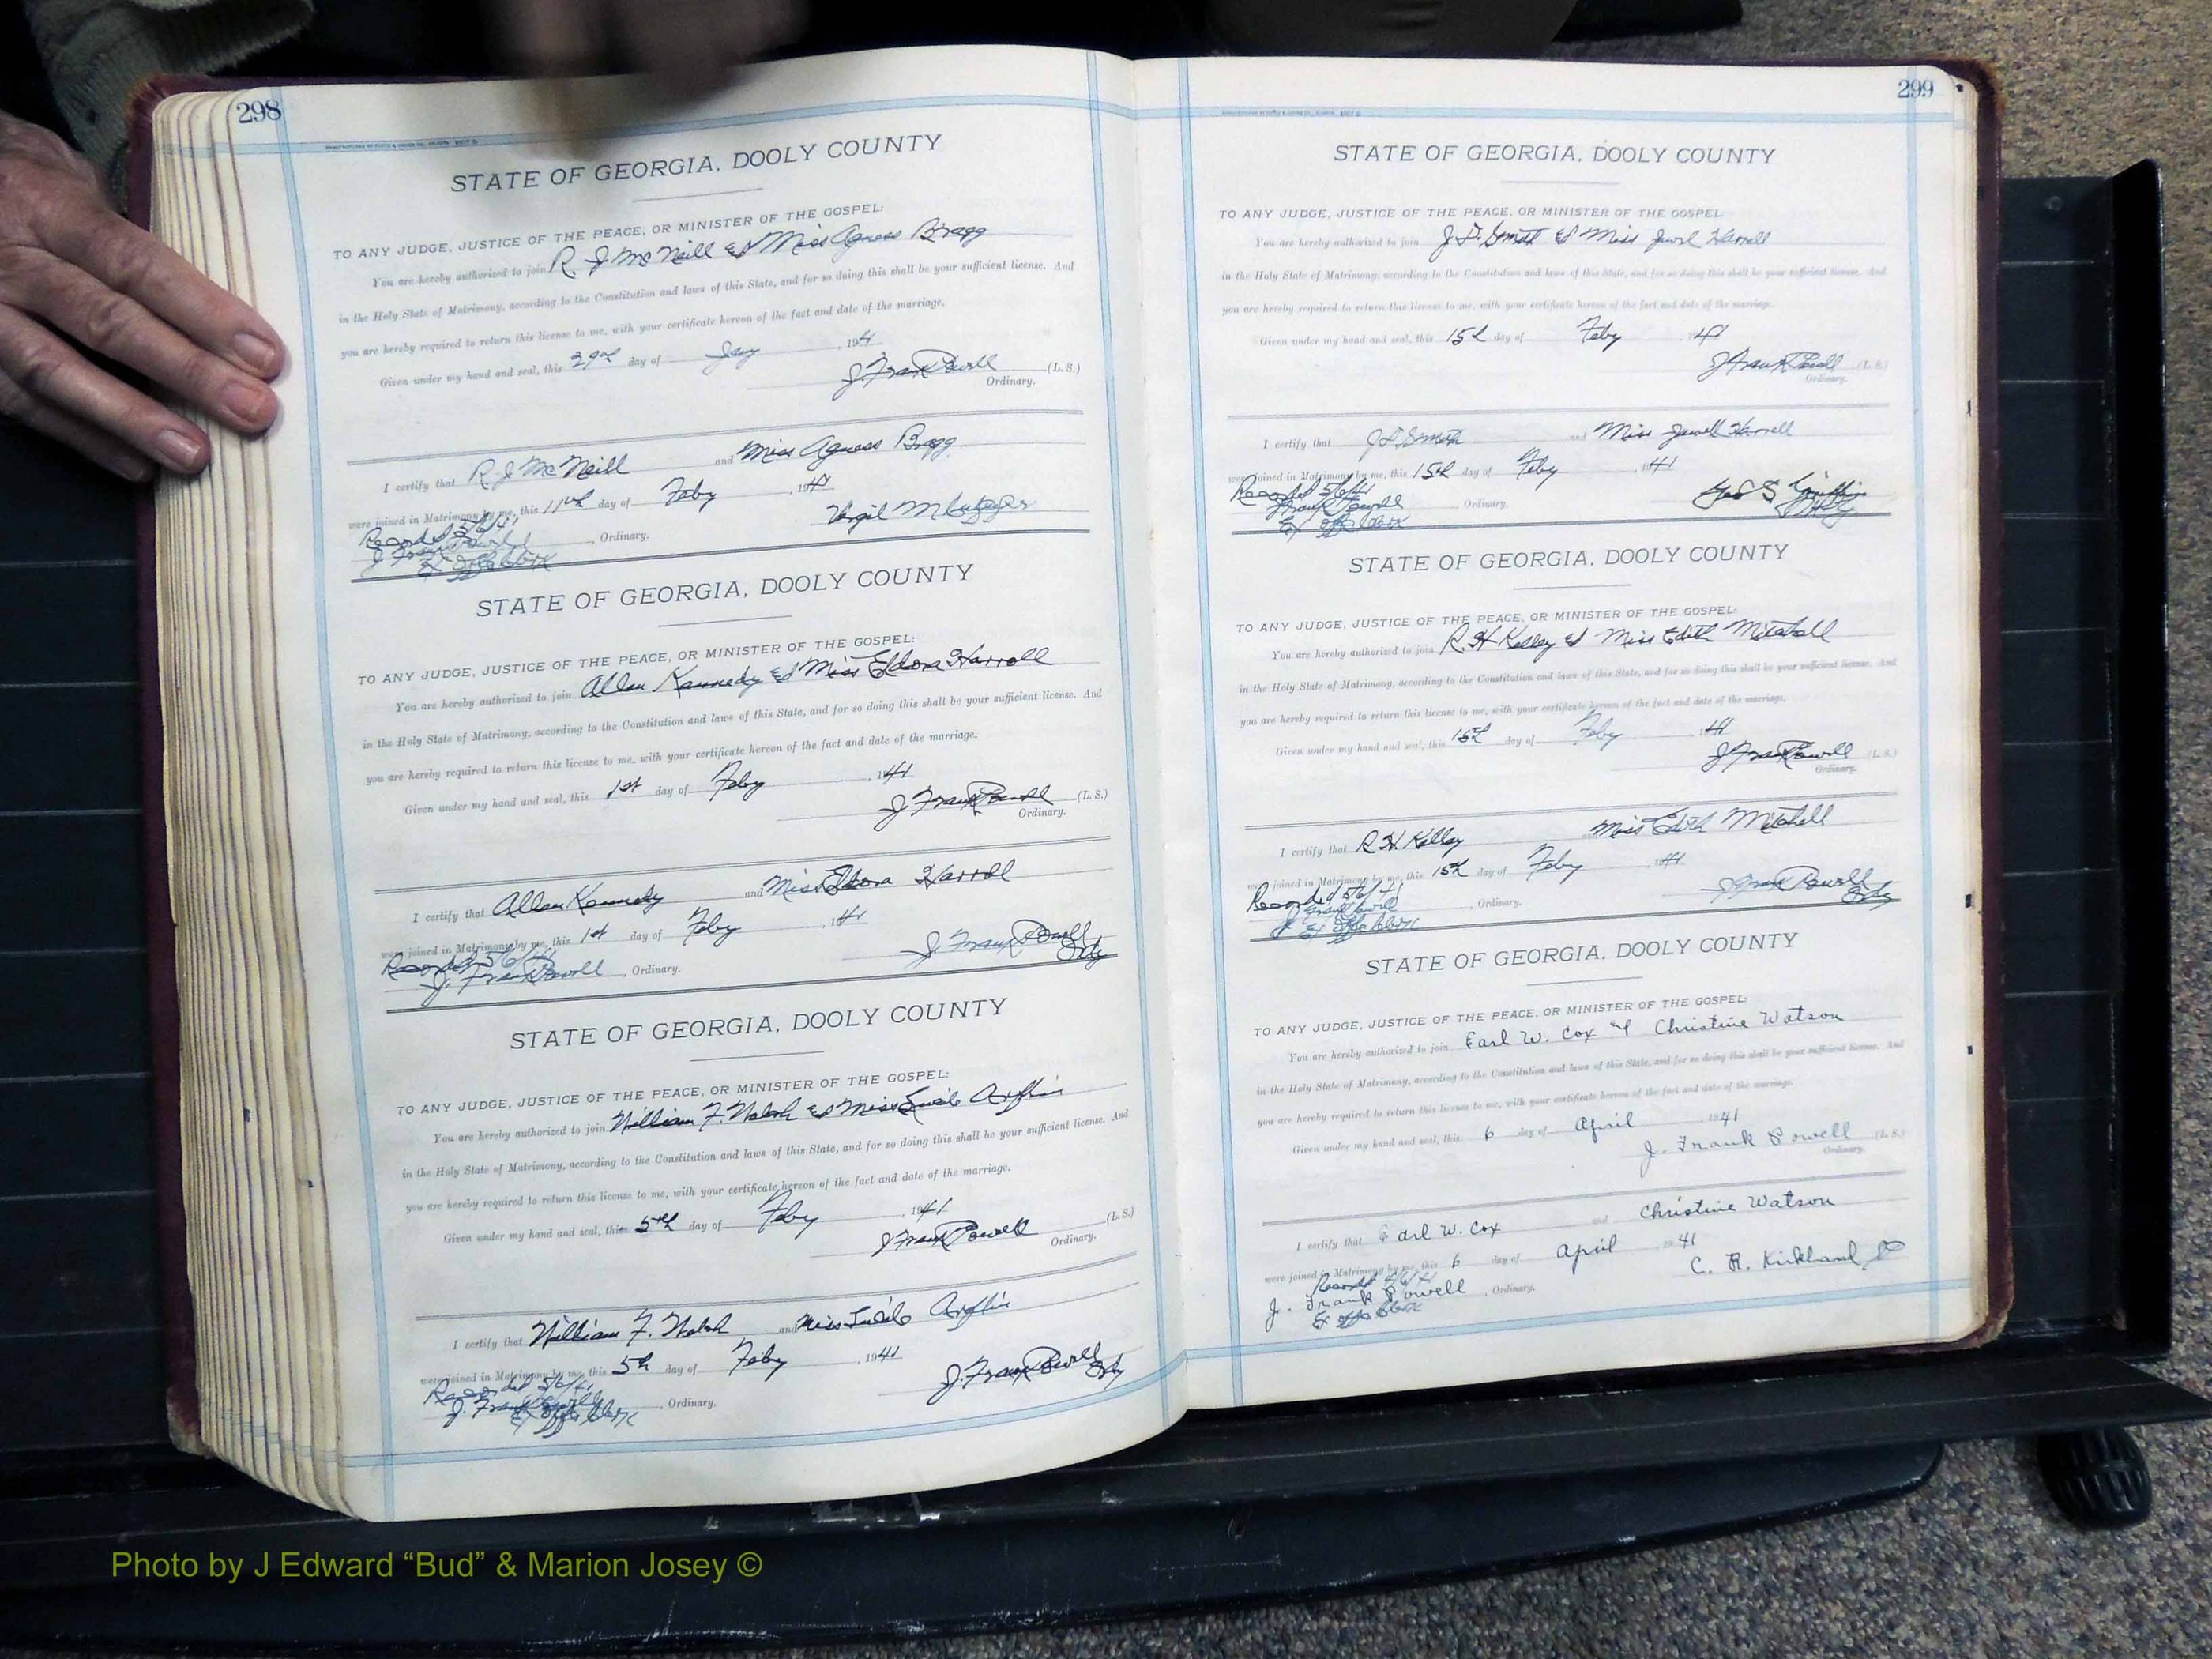 298
STATE OF GEORGIA, DOOLY COUNTY
TO ANY JUDGE, JUSTICE OF THE PEACE, OR MINISTER OF THE GOSPEL:
You are hereby authorized to join R. J McNeill & Miss Agness Bragg
in the Holy State of Matrimony, according to the Constitution and laws of this State, and for so doing this shall be your sufficient license. And
you are hereby required to return this license to me, with your certificate hereon of the fact and date of the marriage.
Given under my hand and seal, this 29th day of Jany , 1941
J Frank Powell (L. S.)
Ordinary.
I certify that R J McNeill and Miss Agness Bragg
were joined in Matrimony by me, this 11th day of Feby , 1941
Recorded 5/6/41 Virgil
J Frank Powell , Ordinary.
Ex offo Clerk
STATE OF GEORGIA, DOOLY COUNTY
TO ANY JUDGE, JUSTICE OF THE PEACE, OR MINISTER OF THE GOSPEL:
You are hereby authorized to join Allan Kennedy & Miss Eldora Harrell
in the Holy State of Matrimony, according to the Constitution and laws of this State, and for so doing this shall be your sufficient license. And
you are hereby required to return this license to me, with your certificate hereon of the fact and date of the marriage.
Given under my hand and seal, this 1st day of Feby , 1941
J Frank Powell (L. S.)
Ordinary.
I certify that Allan Kennedy and Miss Eldora Harrell
were joined in Matrimony by me, this 1st day of Feby , 1941
Recorded 5/6/41 J. Frank Powell
J. Frank Powell , Ordinary. Ordy
STATE OF GEORGIA, DOOLY COUNTY
TO ANY JUDGE, JUSTICE OF THE PEACE, OR MINISTER OF THE GOSPEL:
You are hereby authorized to join William F. & Miss Lucile
in the Holy State of Matrimony, according to the Constitution and laws of this State, and for so doing this shall be your sufficient license. And
you are hereby required to return this license to me, with your certificate hereon of the fact and date of the marriage.
Given under my hand and seal, this 5th day of Feby , 1941
J Frank Powell (L. S.)
Ordinary.
I certify that William F. and Miss Lucile
were joined in Matrimony by me, this 5th day of Feby , 1941
Recorded 5/6/41 J. Frank Powell
J. Frank Powell , Ordinary. Ordy
Ex offo Clerk
299
STATE OF GEORGIA, DOOLY COUNTY
TO ANY JUDGE, JUSTICE OF THE PEACE, OR MINISTER OF THE GOSPEL:
You are hereby authorized to join Smith & Miss Jewel Harrell
in the Holy State of Matrimony, according to the Constitution and laws of this State, and for so doing this shall be your sufficient license. And
you are hereby required to return this license to me, with your certificate hereon of the fact and date of the marriage.
Given under my hand and seal, this 15th day of Feby , 1941
J Frank Powell (L. S.)
Ordinary.
I certify that Smith and Miss Jewell Harrell
were joined in Matrimony by me, this 15th day of Feby 1941
Recorded 5/6/41 Geo S Griffin
J Frank Powell , Ordinary.
Ex offo Clerk
STATE OF GEORGIA, DOOLY COUNTY
TO ANY JUDGE, JUSTICE OF THE PEACE, OR MINISTER OF THE GOSPEL:
You are hereby authorized to join R. H Kelley & Miss Edith Mitchell
in the Holy State of Matrimony, according to the Constitution and laws of this State, and for so doing this shall be your sufficient license. And
you are hereby required to return this license to me, with your certificate hereon of the fact and date of the marriage.
Given under my hand and seal, this 15th day of Feby 1941
J Frank Powell (L. S.)
Ordinary.
I certify that R H Kelley Miss Edith Mitchell
were joined in Matrimony by me, this 15th day of Feby 1941
Recorded 5/6/41 J Frank Powell
J Frank Powell , Ordinary. Ordy
Ex offo Clerk
STATE OF GEORGIA, DOOLY COUNTY
TO ANY JUDGE, JUSTICE OF THE PEACE, OR MINISTER OF THE GOSPEL:
You are hereby authorized to join Earl W. Cox & Christine Watson
in the Holy State of Matrimony, according to the Constitution and laws of this State, and for so doing this shall be your sufficient license. And
you are hereby required to return this license to me, with your certificate hereon of the fact and date of the marriage.
Given under my hand and seal, this 6 day of April 1941
J. Frank Powell (L. S.)
Ordinary.
I certify that Earl W. Cox and Christine Watson
were joined in Matrimony by me, this 6 day of April 1941
Recorded C. R. Kirkland
J. Frank Powell , Ordinary.
Ex offo Clerk
Photo by J Edward “Bud” & Marion Josey ©